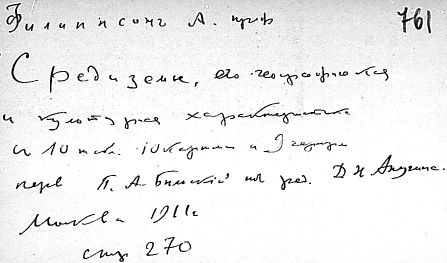 Филиппсонъ А. проф 761
Средиземн, его географическая
и культурная характеристика
съ 10 табл. 10 картами и 9 чертеж
перев П. А. Бѣльскій под ред. Д Н Анучина.
Москва 1911г
стр 270